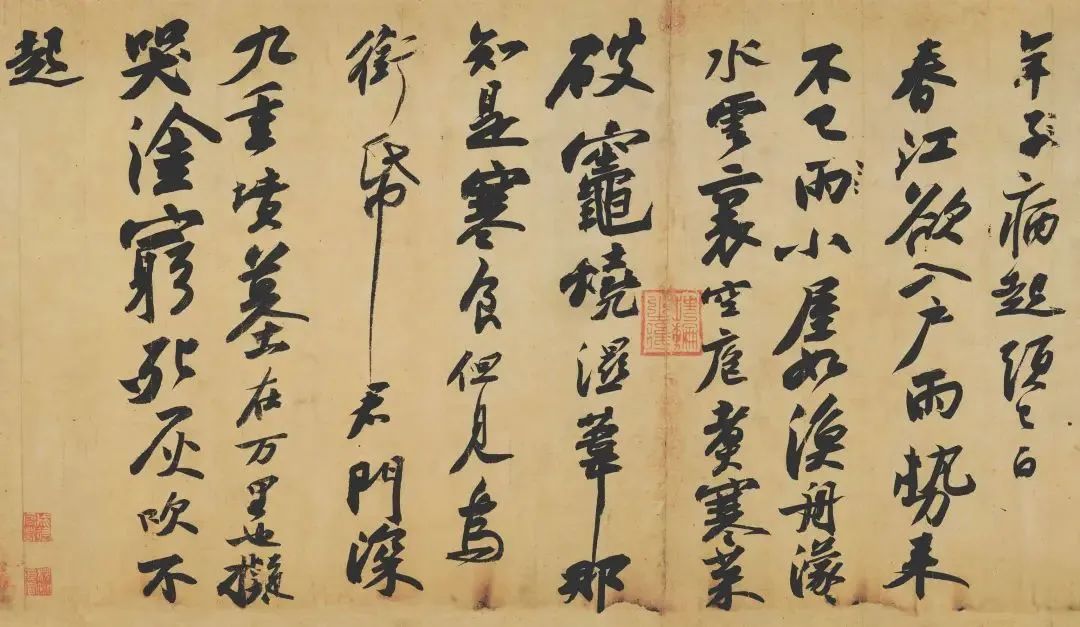 年子病起須已白
春江欲入戶雨勢来
不已雨小屋如漁舟濛〻
水雲裏空庖煮寒菜
破竈燒濕葦那
知是寒食但見烏
銜帋君門深
九重墳墓在万里也擬
哭塗窮死灰吹不
起